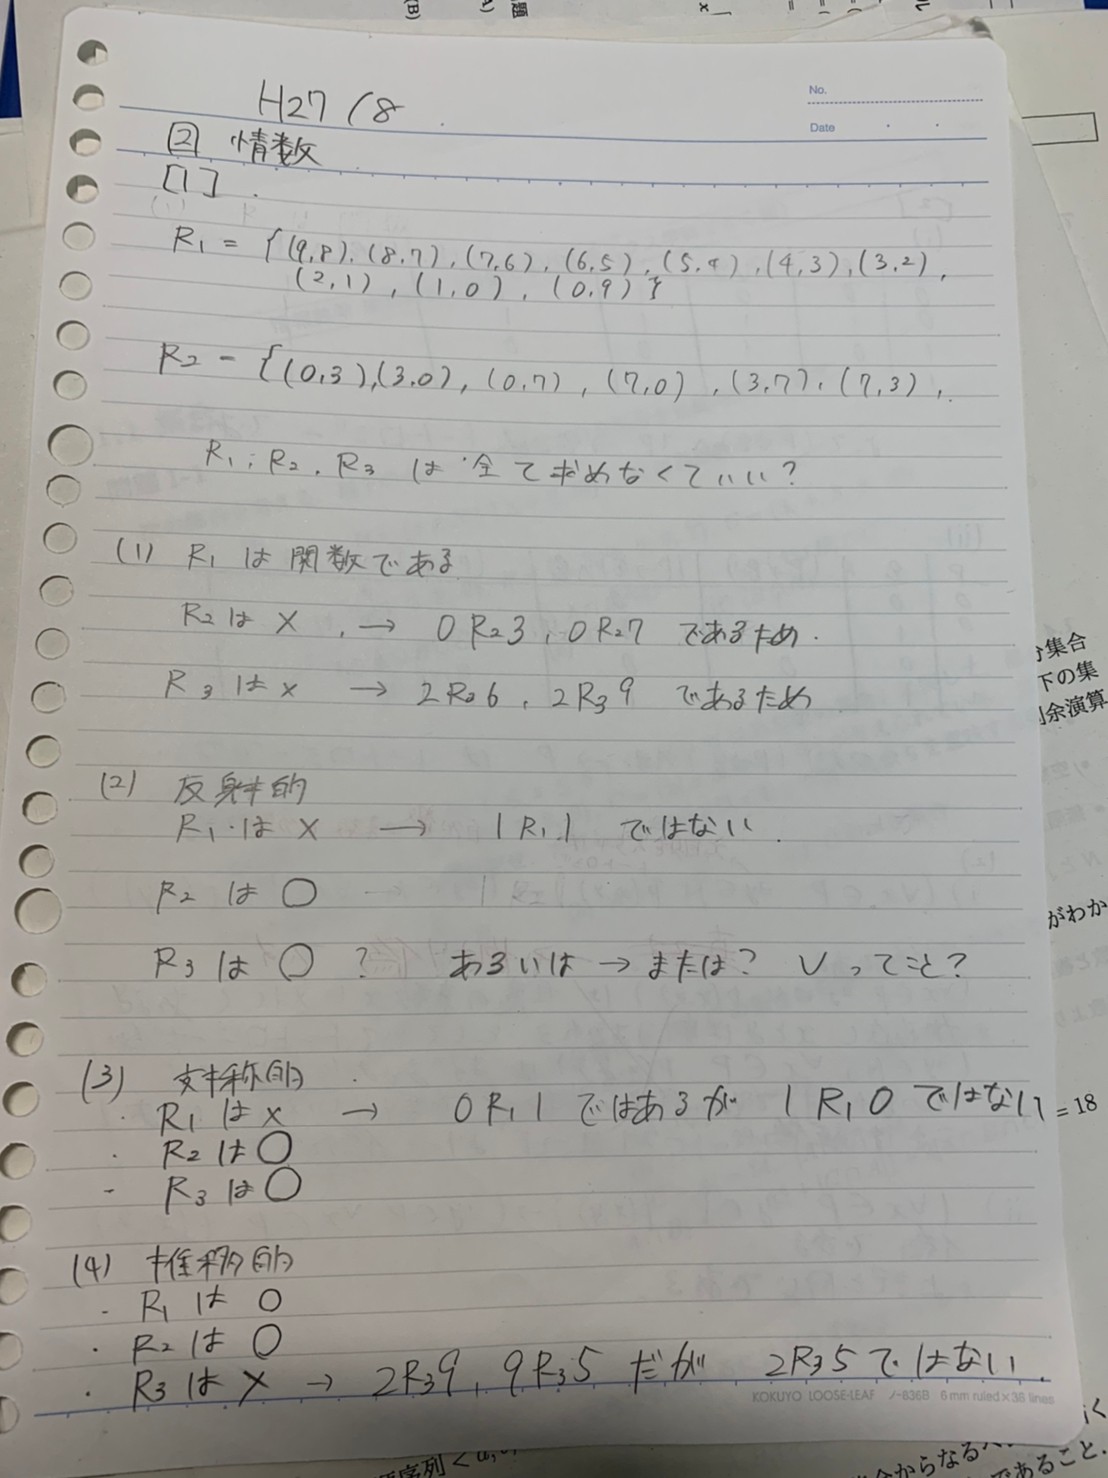 (B)
A)
題
x
No.
Date
H27/8
② 情数
[1]
R1 = {(9,8), (8,7), (7,6), (6,5), (5,4), (4,3), (3,2),
(2,1), (1,0), (0,9)}
R2 = {(0,3),(3,0), (0,7), (7,0), (3,7), (7,3),
R1, R2, R3 は 全て求めなくていい?
(1) R1 は関数である
R2は × → 0R23, 0R27 であるため.
R3は× → 2R36, 2R39 であるため
(2) 反射的
R1は × → 1R11 ではない
R2 は ○
R3 は ○ ? あるいは → または? ∨ってこと?
(3) 対称的
・R1は× → 0R11 ではあるが 1R10 ではない
・R2は○
・R3は○
(4) 推移的
・R1は ○
・R2は ○
・R3は × → 2R39, 9R35 だが 2R35ではない
KOKUYO LOOSE-LEAF ノ-836B 6 mm ruled×36 lines
分集合
下の集
余演算
がわか
= 18
からなる
であること.
序列<